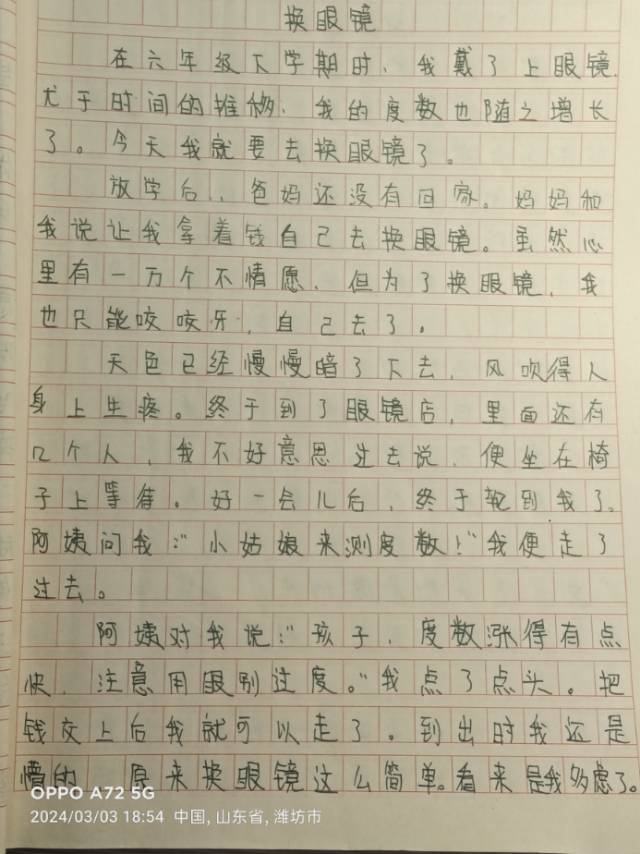 换眼镜
在六年级下学期时,我戴了上眼镜.
尤于时间的推移,我的度数也随之增长
了。今天我就要去换眼镜了。
放学后,爸妈还没有回家。妈妈和
我说让我拿着钱自己去换眼镜。虽然心
里有一万个不情愿,但为了换眼镜,我
也只能咬咬牙,自己去了。
天色已经慢慢暗了下去,风吹得人
身上生疼。终于到了眼镜店,里面还有
几个人,我不好意思过去说,便坐在椅
子上等待。好一会儿后,终于轮到我了。
阿姨问我:"小姑娘来测度数!"我便走了
过去。
阿姨对我说:"孩子,度数涨得有点
快,注意用眼别过度。"我点了点头。把
钱交上后我就可以走了。到出时我还是
懵的 原来换眼镜这么简单。看来是我多虑了。
OPPO A72 5G
2024/03/03 18:54 中国, 山东省, 潍坊市